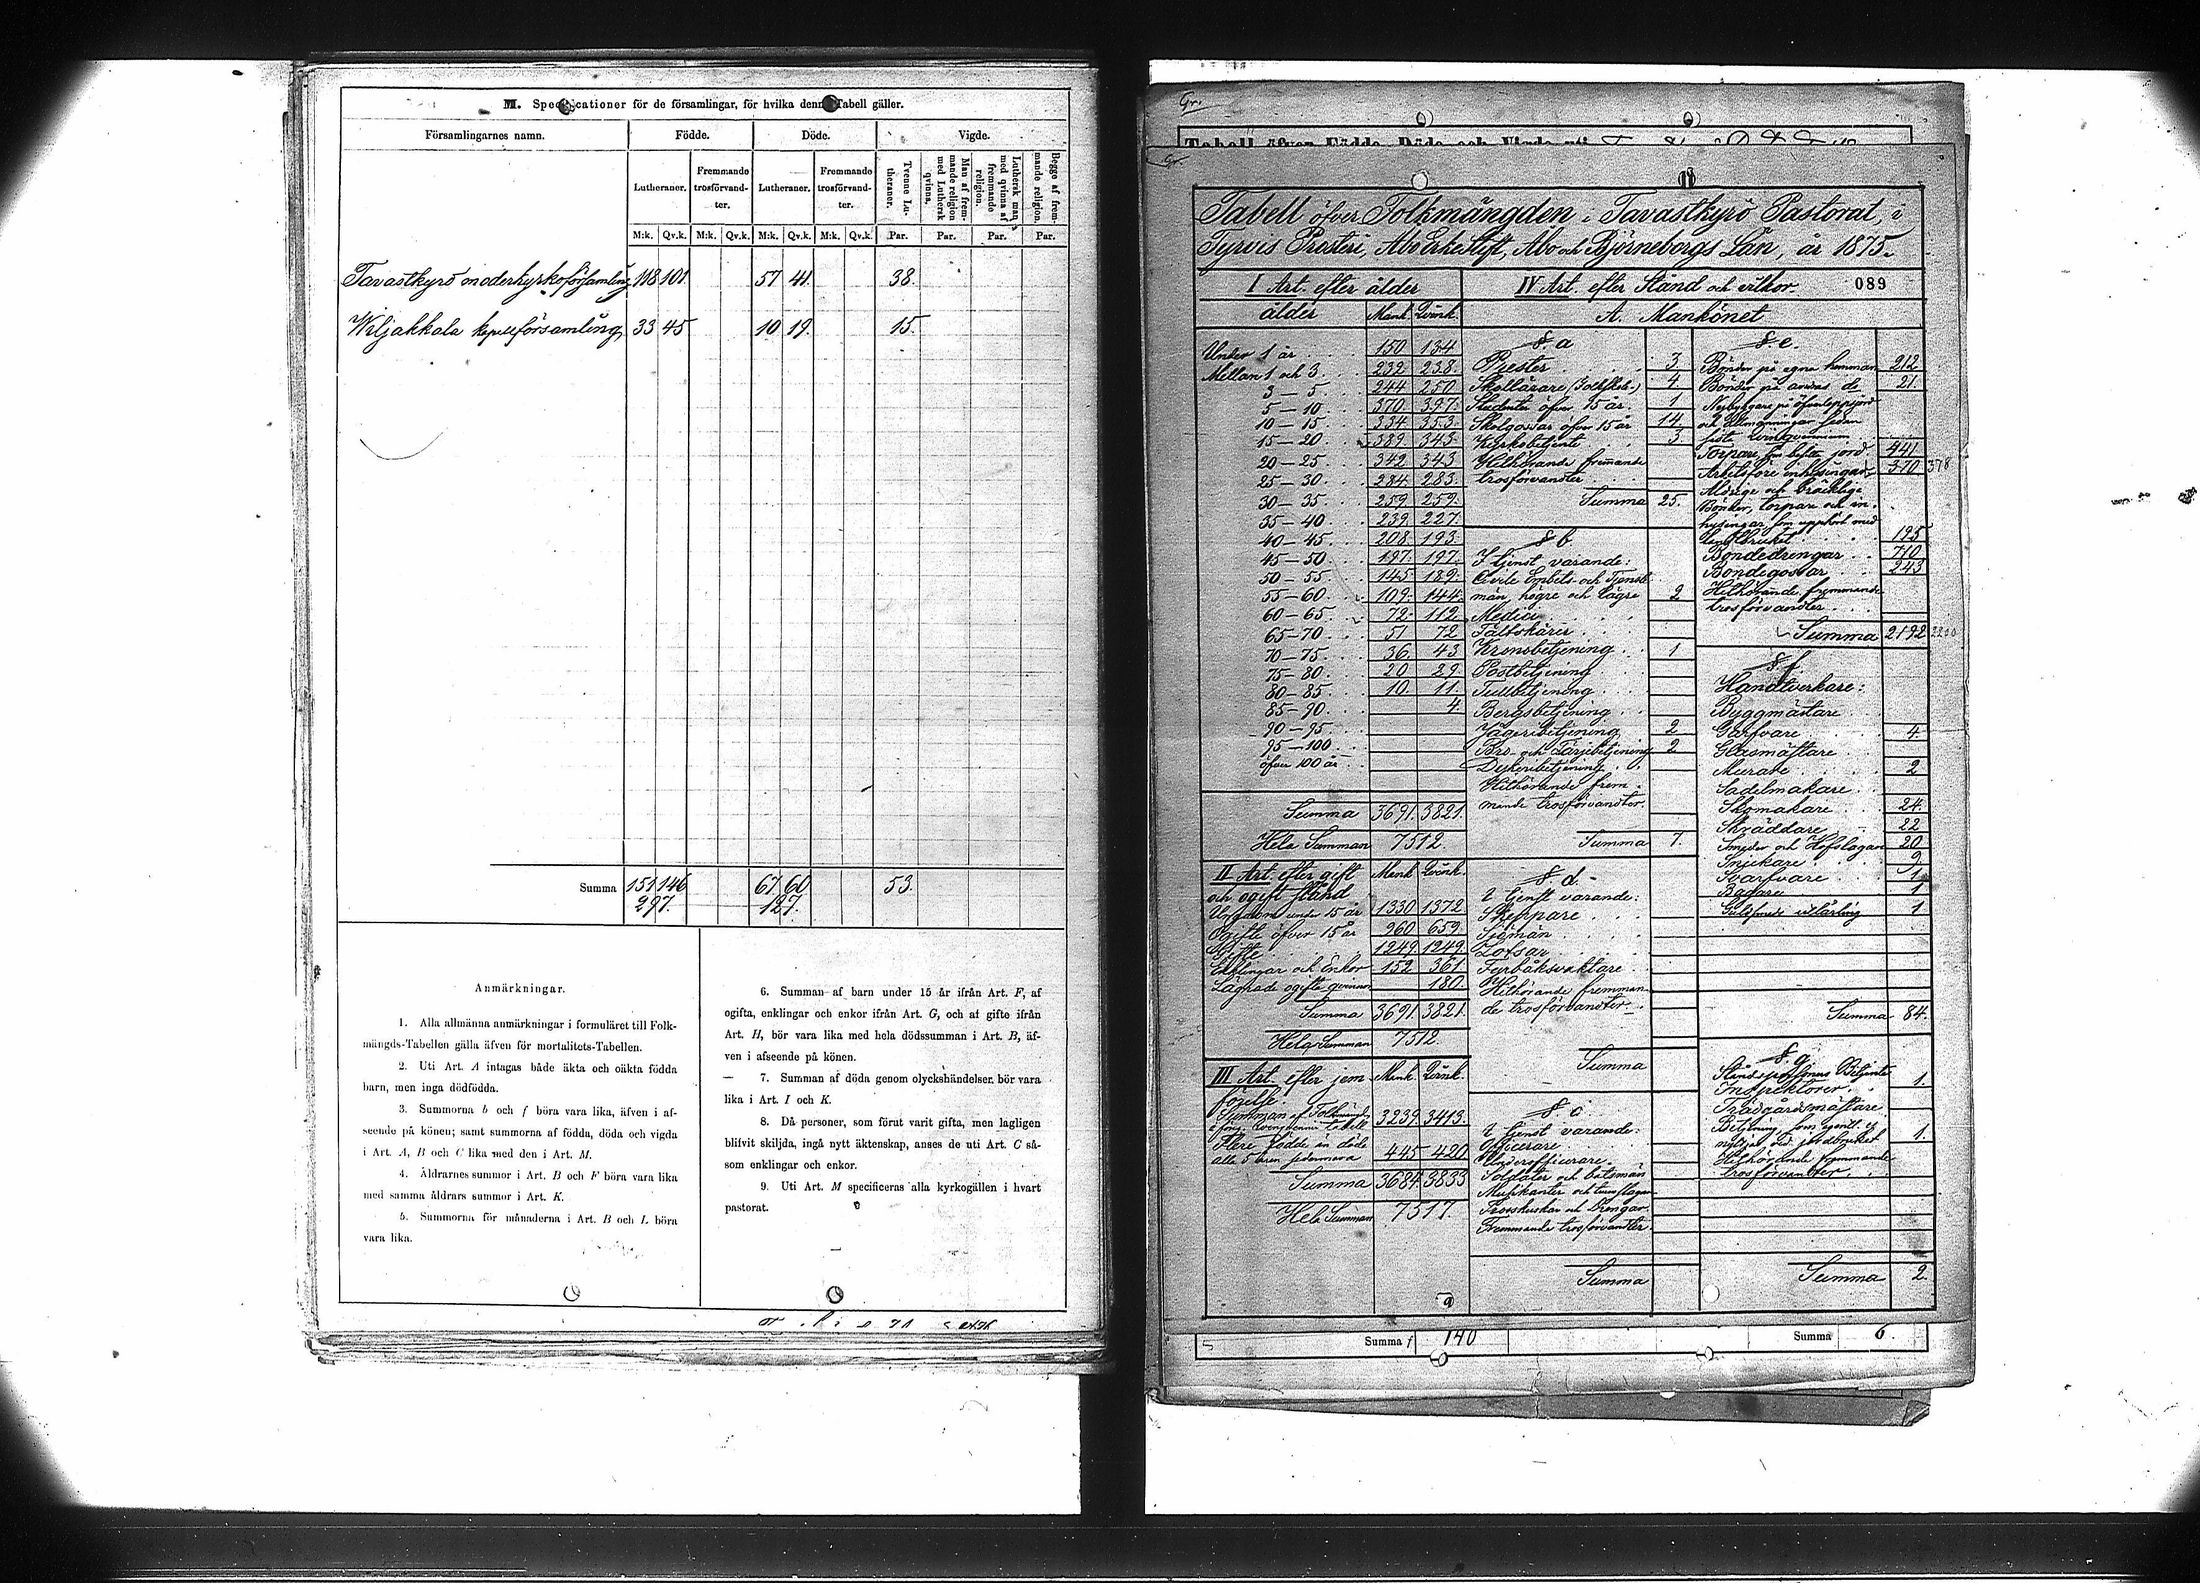 M. Specificationer för de församlingar, för hvilka denna Tabell gäller.
Församlingarnes namn. Födde. Döde. Vigde.
Lutheraner. Fremmande trosförvandter. Lutheraner. Fremmande trosförvandter. Tvenne Lutheraner. Man af fremmande religion med Luthersk qvinna. Luthersk man med qvinna af fremmande religion. Begge af fremmande religion.
M:k. Qv.k. M:k. Qv.k. M:k. Qv.k. M:k. Qv.k. Par. Par. Par. Par.
Tavastkyrö moderkyrkoförsamling 118 101 57 41 38.
Wiljakkala kapellförsamling 33 45 10 19. 15.
Summa 151 146 67 60 53.
297. 127.
Anmärkningar.
1. Alla allmänna anmärkningar i formuläret till Folk-
mängds-Tabellen gälla äfven för mortalitets-Tabellen.
2. Uti Art. A intagas både äkta och oäkta födda
barn, men inga dödfödda.
3. Summorna b och f böra vara lika, äfven i af-
seende på könen; samt summorna af födda, döda och vigda
i Art. A, B och C lika med den i Art. M.
4. Åldrarnes summor i Art. B och F böra vara lika
med samma åldrars summor i Art. K.
5. Summorna för månaderna i Art. B och L böra
vara lika.
6. Summan af barn under 15 år ifrån Art. F, af
ogifta, enklingar och enkor ifrån Art. G, och af gifte ifrån
Art. H, bör vara lika med hela dödssumman i Art. B, äf-
ven i afseende på könen.
7. Summan af döda genom olyckshändelser bör vara
lika i Art. I och K.
8. Då personer, som förut varit gifta, men lagligen
blifvit skiljda, ingå nytt äktenskap, anses de uti Art. C så-
som enklingar och enkor.
9. Uti Art. M specificeras alla kyrkogällen i hvart
pastorat.
Gr.
Tabell öfver Födde, Döde och Vigde uti
Gr.
Tabell öfver Folkmängden i Tavastkyrö Pastorat, i
Tyrvis Prosteri, Åbo Erkestift, Åbo och Björneborgs Län, år 1875.
I Art. efter ålder
ålder Mank. Qvink.
Under 1 år 150 134
Mellan 1 och 3 239. 238.
3 — 5 244 250
5 — 10 370 397
10 — 15 334 353
15 — 20 389 343
20 — 25 342 343
25 — 30 284 283
30 — 35 259 259
35 — 40 239 227
40 — 45 208 193
45 — 50 197 197
50 — 55 145 189
55 — 60 109 144
60 — 65 72 112
65 — 70 51 72
70 — 75 36 43
75 — 80 20 29
80 — 85 10 11
85 — 90 4
90 — 95
95 — 100
öfver 100 år
Summa 3691 3821
Hela Summan 7512.
II Art. efter gift Mank Qvink.
och ogift stånd
Ungdom under 15 år 1330 1372
Ogifte öfver 15 år 960 659
Gifte 1249 1249
Enklingar och Enkor 152 361
Lägrade ogifte qvinnor 180
Summa 3691 3821
Hela Summan 7512
III Art. efter jem- Mank. Qvink.
förelse.
Summan af Folkmängd 3239 3413
Flere födde än döde
alla 5 åren sedermera 445 420
Summa 3684 3833
Hela Summan 7517
IV Art. efter Stånd och vilkor. 089
A. Mankönet
§. a
Prester 3
Skollärare (Folkskole) 4
Studenter öfver 15 år 1
Skolgossar öfver 15 år 14
Kyrkobetjente 3
Hithörande fremmande
trosförvandter
Summa 25.
§ b
I tjenst varande:
Civile Embets- och Tjenste-
män, högre och lägre 2
Medici
Fältskärer
Kronobetjening 1
Postbetjening
Tullbetjening
Bergsbetjening
Jägeribetjening 2
Bro- och Färjebetjening 2
Dykeribetjening
Hithörande frem-
mande trosförvandter
Summa 7.
§ d.
I tjenst varande:
Skeppare
Sjömän
Lotsar
Fyrbåksvaktare
Hithörande fremman-
de trosförvandter
Summa
§ c
I tjenst varande:
Officerare
Underofficerare
Soldater och båtsmän
Musikanter och trumslagare
Trosskuskar och drengar
Fremmande trosförvandter
Summa
§. e.
Bönder på egna hemman 212
Bönder på andras do 21.
Torpare som häfda jord 441
Arbetsföre inhysingar 370 378
Åldrige och bräcklige
Bönder, torpare och in-
hysingar som upphört med
landtbruket 195
Bondedrengar 710
Bondegossar 243
Hithörande fremmande
trosförvandter
Summa 2192 2200
§. f
Handtverkare:
Byggmästare
Garfvare 4.
Glasmästare
Murare 2
Sadelmakare
Skomakare 24.
Skräddare 22
Smeder och Hofslagare 20
Snickare 9
Svarfvare 1
Bagare 1
Guldsmeds utlärling 1
Summa 84.
§. g
Ståndspersoners Betjente
Inspektorer 1.
Trädgårdsmästare
Betjening som egentl. ej
nyttjas vid jordbruket 1.
Hithörande fremmande
trosförvandter
Summa 2.
Summa f 140
Summa 6.